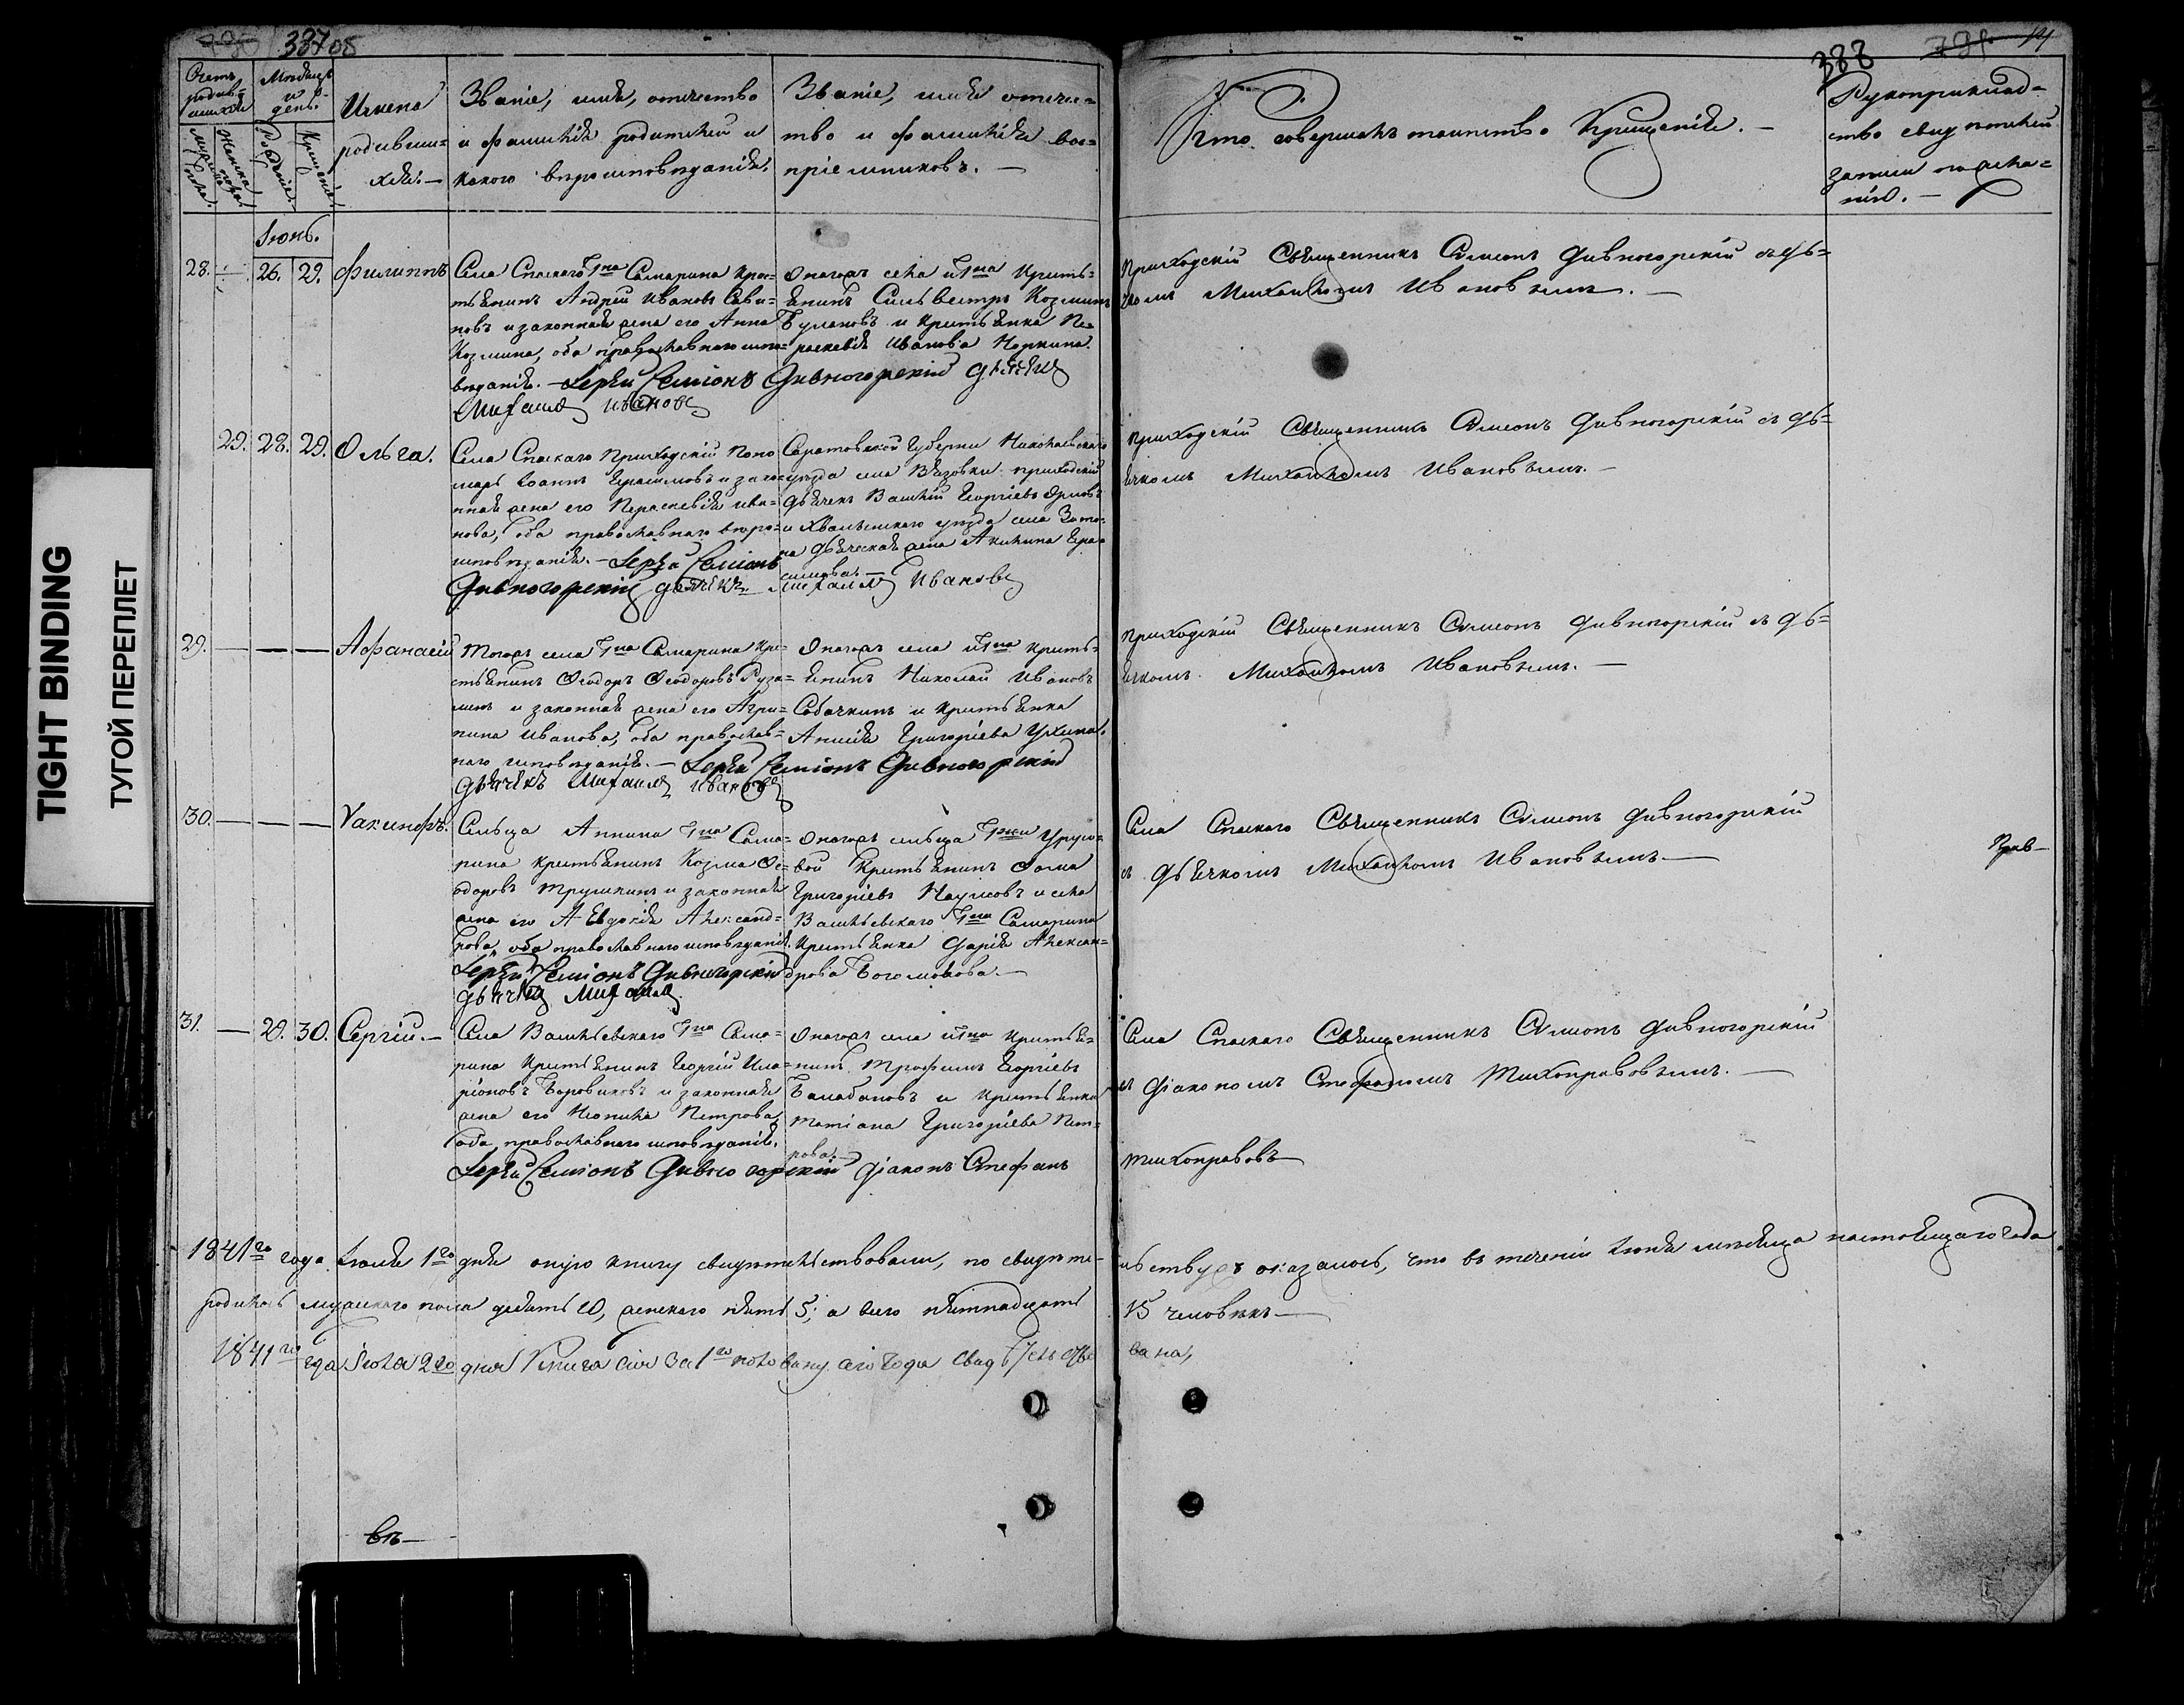 337 05
388 14
Счетъ родив-шихся
Мѣсяцъ и день.
Мужеска пола.
Женска пола.
Рожденіе.
Крещеніе.
Имена
родивши-
хся. —
Званіе, имя, отечество
и фамилія родителей и
какого вѣроисповѣданія.
Званіе, имя отече-
ство и фамилія вос-
пріемниковъ. —
Кто совершалъ таинство Крещенія. —
Рукоприклад-
ство свидѣтелей
записи по жела-
нію. —
Іюнь.
28. — 26. 29. Филиппъ
Села Спаскаго Гна Самарина крес-
тьянинъ Андрей Ивановъ Сави-
новъ и законная жена его Анна
Козмина, оба православнаго испо-
вѣданія. — Іерѣй Семіонъ Дивногорскій дьячекъ
Михаилъ Ивановъ
Онагожъ села и Гна кресть-
янинъ Сильвестръ Козминъ
Булановъ и крестьянка Па-
раскевія Иванова Норкина.
приходскій Священникъ Симеонъ Дивногорскій съ дья-
чкомъ Михаиломъ Ивановымъ. —
29. 28. 29. Ольга.
Села Спаскаго Приходскій Поно
марь Іоаннъ Герасимовъ и зако-
нная жена его Параскевія Ива-
нова, оба православнаго вѣро-
исповѣданія. — Іерѣй Семіонъ
Дивногорскій дьячекъ Михаилъ Ивановъ
Саратовской Губерни Николаевскаго
уѣзда села Вязовки приходскій
дьячекъ Василій Георгіевъ Орловъ
и Хвалынскаго уѣзда села
на дьяческая жена Акилина Гера-
симова. —
приходскій Священникъ Симеонъ Дивногорскій съ дь-
ячкомъ Михаиломъ Ивановымъ. —
29. — — — Афанасій
Тогожъ села Гна Самарина кре-
стьянинъ Феодоръ Феодоровъ Руза-
инъ и законная жена его Агри-
пина Иванова, оба православ-
наго исповѣданія. — Іерѣй Семіонъ Дивногорскій
дьячекъ Михаилъ Ивановъ
Онагожъ села и Гна кресть-
янинъ Николай Ивановъ
Собачкинъ и крестьянка
Анисія Григоріева Ухина.
приходскій Священникъ Симеонъ Дивногорскій съ дь-
ячкомъ Михаиломъ Ивановымъ. —
30. — — — Ѵакинфъ.
Сельца Аннина Гна Сама-
рина крестьянинъ Козма Фе-
одоровъ Трушкинъ и законная
жена его Евдокія Александ-
рова, оба православнаго исповѣданія.
Іерѣй Семіонъ Дивногорскій
дьячекъ Михаилъ
Онагожъ сельца Гжи Урусо-
вой Крестьянинъ Фома
Григоріевъ Наумовъ и села
Васильевскаго Гна Самарина
крестьянка Дарія Алексан-
дрова Богомолова. —
Села Спаскаго Священникъ Симеонъ Дивногорскій
съ дьячкомъ Михаиломъ Ивановымъ —
31. — 29. 30. Сергій. —
Села Васильевскаго Гна Сама-
рина крестьянинъ Георгій Ила-
ріоновъ Боровиковъ и законная
жена его Неонила Петрова,
оба православнаго исповѣданія.
Іерѣй Семіонъ Дивногорскій Діаконъ Стефанъ
Онагожъ села и Гна крестья-
нинъ Трофимъ Георгіевъ
Балабановъ и крестьянка
Татіана Григоріева Пет-
рова. —
Села Спаскаго Священникъ Симеонъ Дивногорскій
съ діакономъ Стефаномъ Тихонравовымъ. —
Тихонравовъ
1841го года Іюля 1го дня оную книгу свидѣтельствовали, по свидѣте-льству оказалось, что въ теченіи Іюня мѣсяца настоящаго года
родилось мужскаго пола десять 10, женскаго пять 5; а всего пятнадцать 15 человѣкъ —
1841го гда Іюля 2го дня Книга сія за 1ю половину сего года свидѣтельствована,
въ—
TIGHT BINDING
ТУГОЙ ПЕРЕПЛЕТ